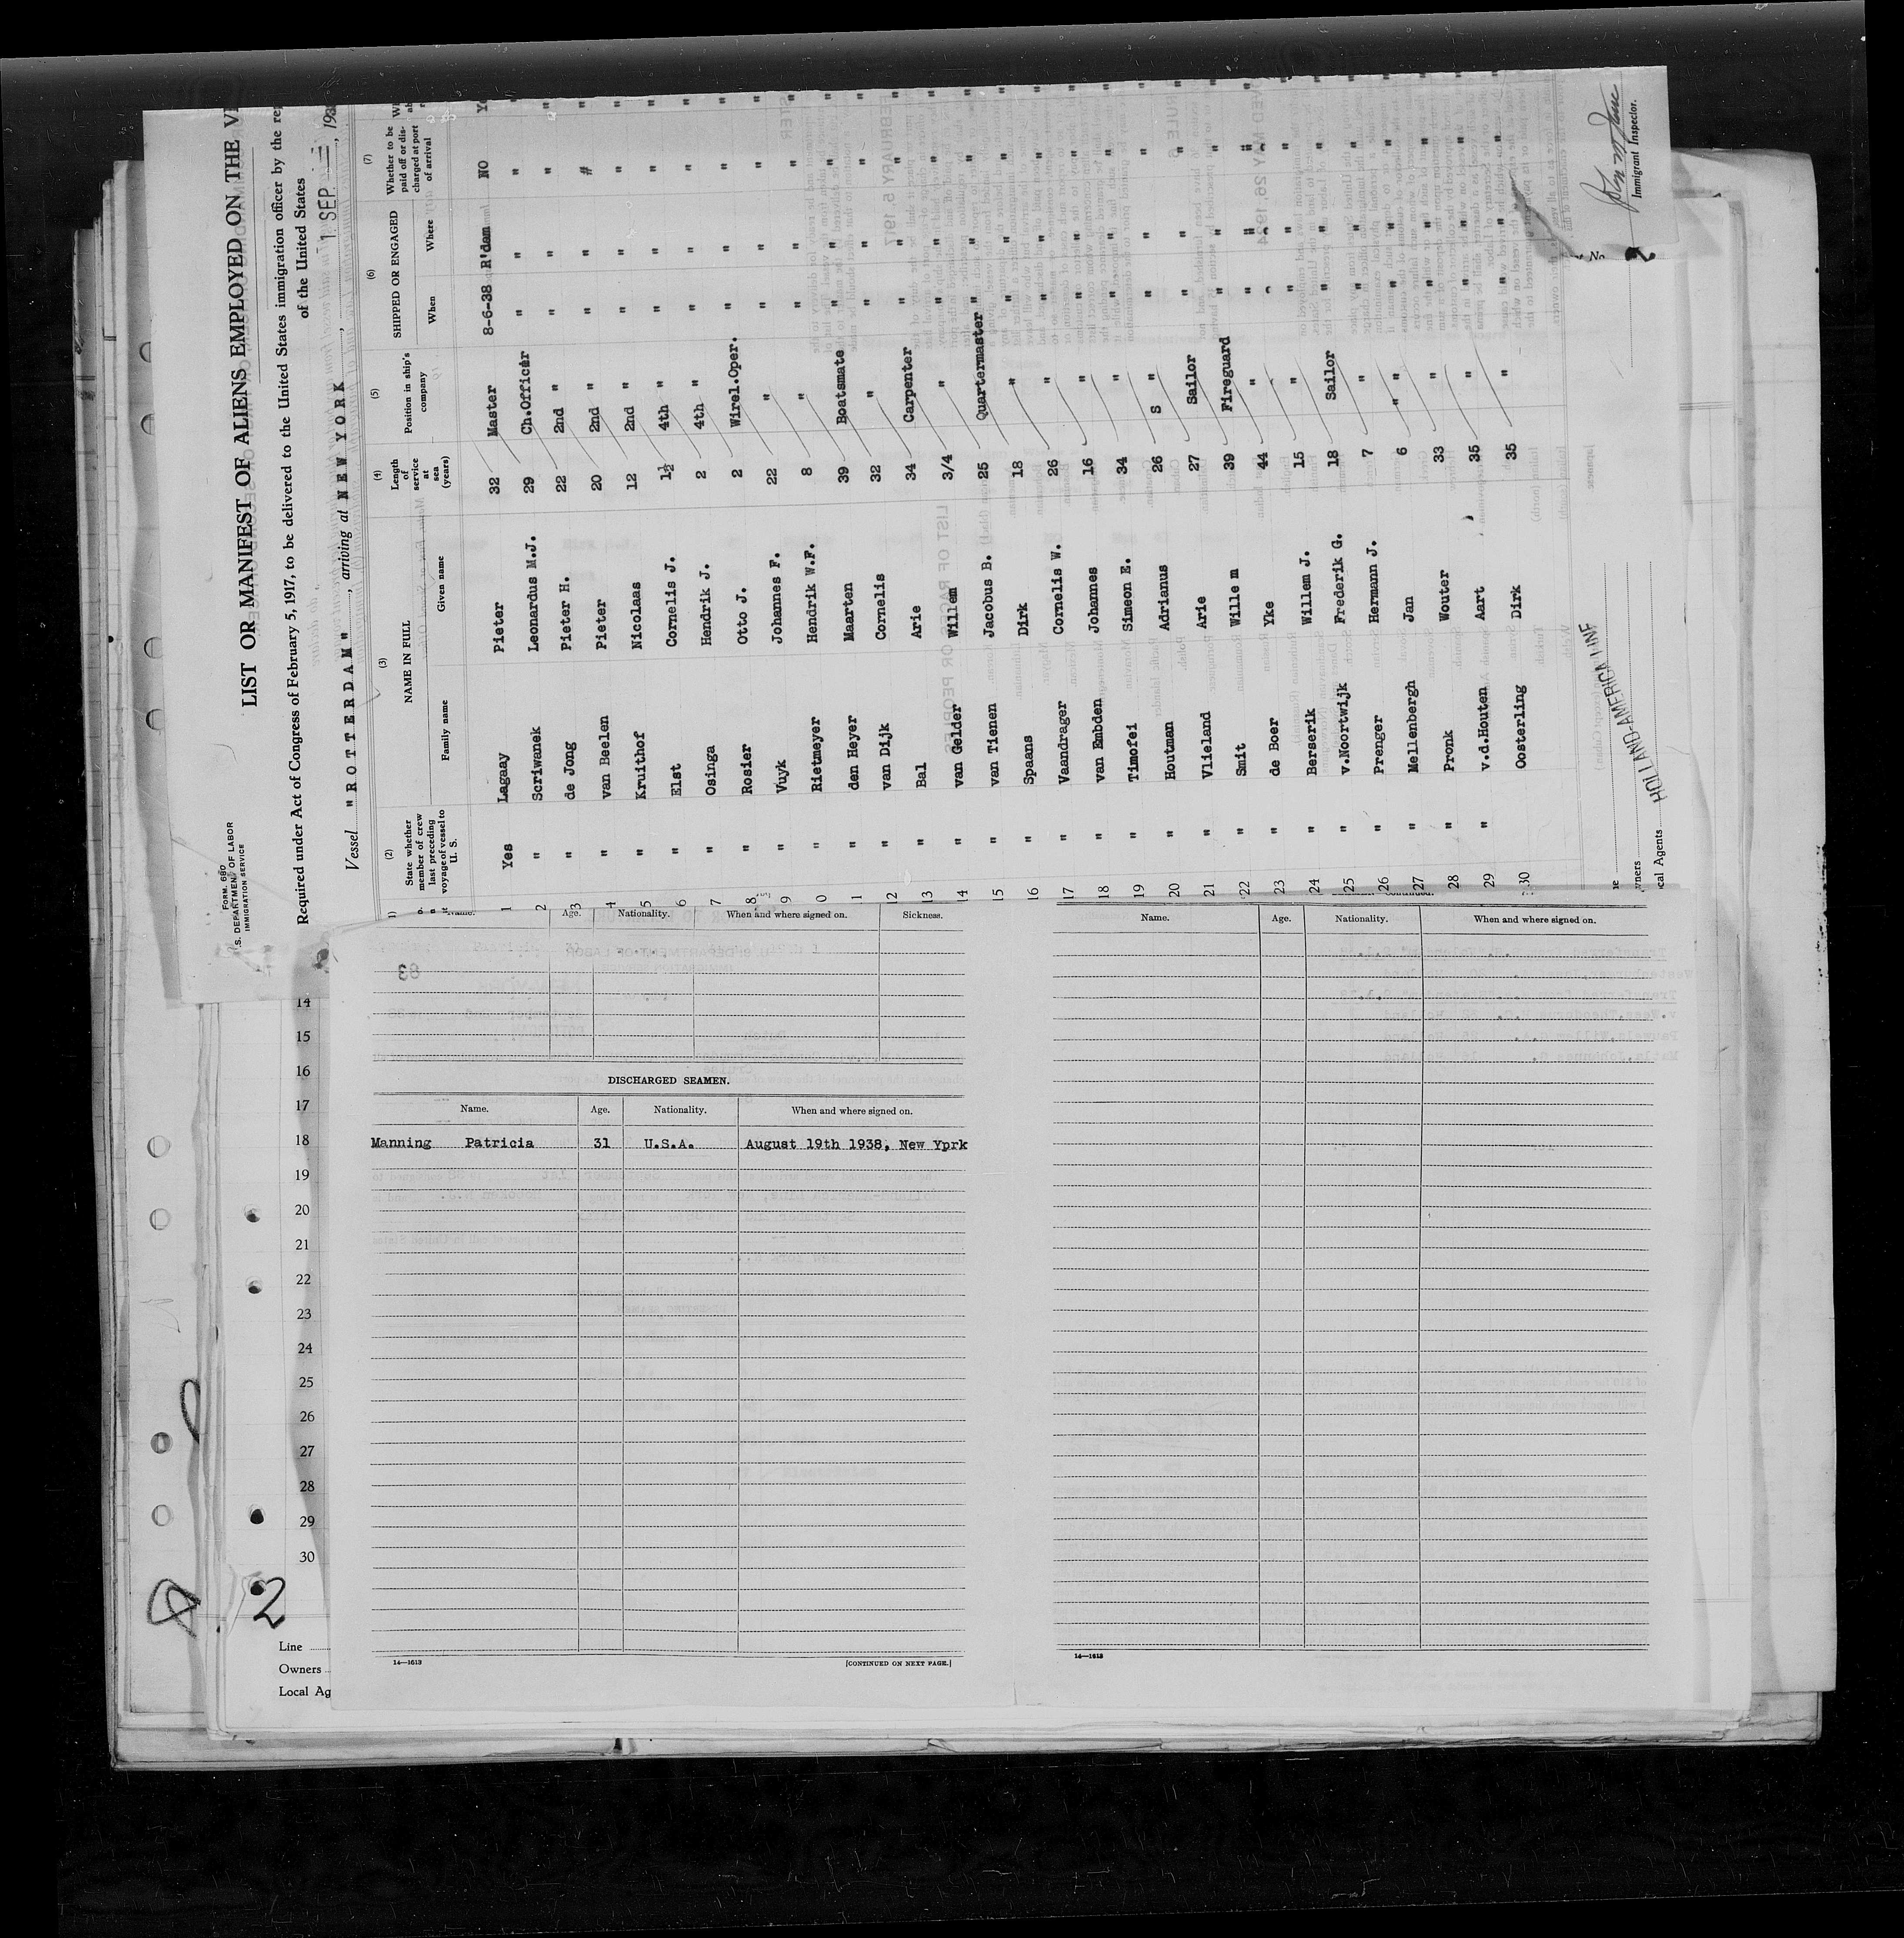 FORM 680
S. DEPARTMENT OF LABOR
IMMIGRATION SERVICE
LIST OR MANIFEST OF ALIENS EMPLOYED ON THE
Required under Act of Congress of February 5, 1917, to be delivered to the United States immigration officer by the
of the United States
Vessel "ROTTERDAM", arriving at NEW YORK, 1 SEP
(2) (3) (4) (5) (6) (7)
State whether member of crew last preceding voyage of vessel to U. S.
NAME IN FULL
Family name Given name
Length of service at sea (years)
Position in ship's company
SHIPPED OR ENGAGED
When Where
Whether to be paid off or discharged at port of arrival
1 Yes Lagaay Pieter 32 Master 8-6-38 R'dam NO
2 " Scriwanek Leonardus M.J. 29 Ch.Officer " " "
3 " de Jong Pieter H. 22 2nd " " " "
4 " van Beelen Pieter 20 2nd " " " #
5 " Kruithof Nicolaas 12 2nd " " " "
6 " Elst Cornelis J. 1½ 4th " " " "
7 " Osinga Hendrik J. 2 4th " " " "
8 " Rosier Otto J. 2 Wirel.Oper. " " "
9 " Vuyk Johannes F. 22 " " " "
0 " Rietmeyer Hendrik W.F. 8 " " " "
1 " den Heyer Maarten 39 Boatsmate " " "
12 " van Dijk Cornelis 32 " " " "
13 " Bal Arie 34 Carpenter " " "
14 " van Gelder Willem 3/4 " " " "
15 " van Tienen Jacobus B. 25 Quartermaster " " "
16 " Spaans Dirk 18 " " " "
17 " Vaandrager Cornelis W. 26 " " " "
18 " van Embden Johannes 16 " " " "
19 " Timofei Simeon E. 34 " " " "
20 " Houtman Adrianus 26 S " " " "
21 " Vlieland Arie 27 Sailor " " "
22 " Smit Wille m 39 Fireguard " " "
23 " de Boer Yke 44 "
24 " Berserik Willem J. 15 " " " "
25 " v.Noortwijk Frederik G. 18 Sailor " " "
26 " Prenger Hermann J. 7 " " " "
27 " Mellenbergh Jan 6 " " " " "
28 " Pronk Wouter 33 " " " "
29 " v.d.Houten Aart 35 " " " "
30 Oosterling Dirk 35 " " " "
wners
cal Agents HOLLAND-AMERICA LINE
Immigrant Inspector.
Name. Age. Nationality. When and where signed on. Sickness.
DISCHARGED SEAMEN.
Name. Age. Nationality. When and where signed on.
Manning Patricia 31 U.S.A. August 19th 1938, New Yprk
14—1613
[CONTINUED ON NEXT PAGE.]
Name. Age. Nationality. When and where signed on.
14—1613
14
15
16
17
18
19
20
21
22
23
24
25
26
27
28
29
30
2
Line
Owners
Local Ag